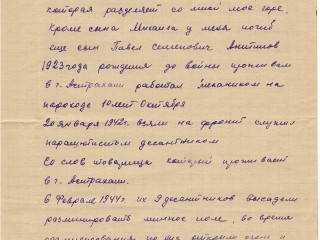 которая разделяет со мной мое горе.
Кроме сына Михаила у меня погиб
еще сын Павел Семенович Антипов
1923 года рождения до войны проживал
в г. Астрахани работал механиком на
пароходе 10 лет Октября
20 января 1942 г. взяли на фронт служил
парашютистом десантником
Со слов товарища который проживает
в г. Астрахани.
В Феврале 1944 г. их 9 десантников высадили
разминировать минное поле, во время
разминирования по ним открыли огонь и